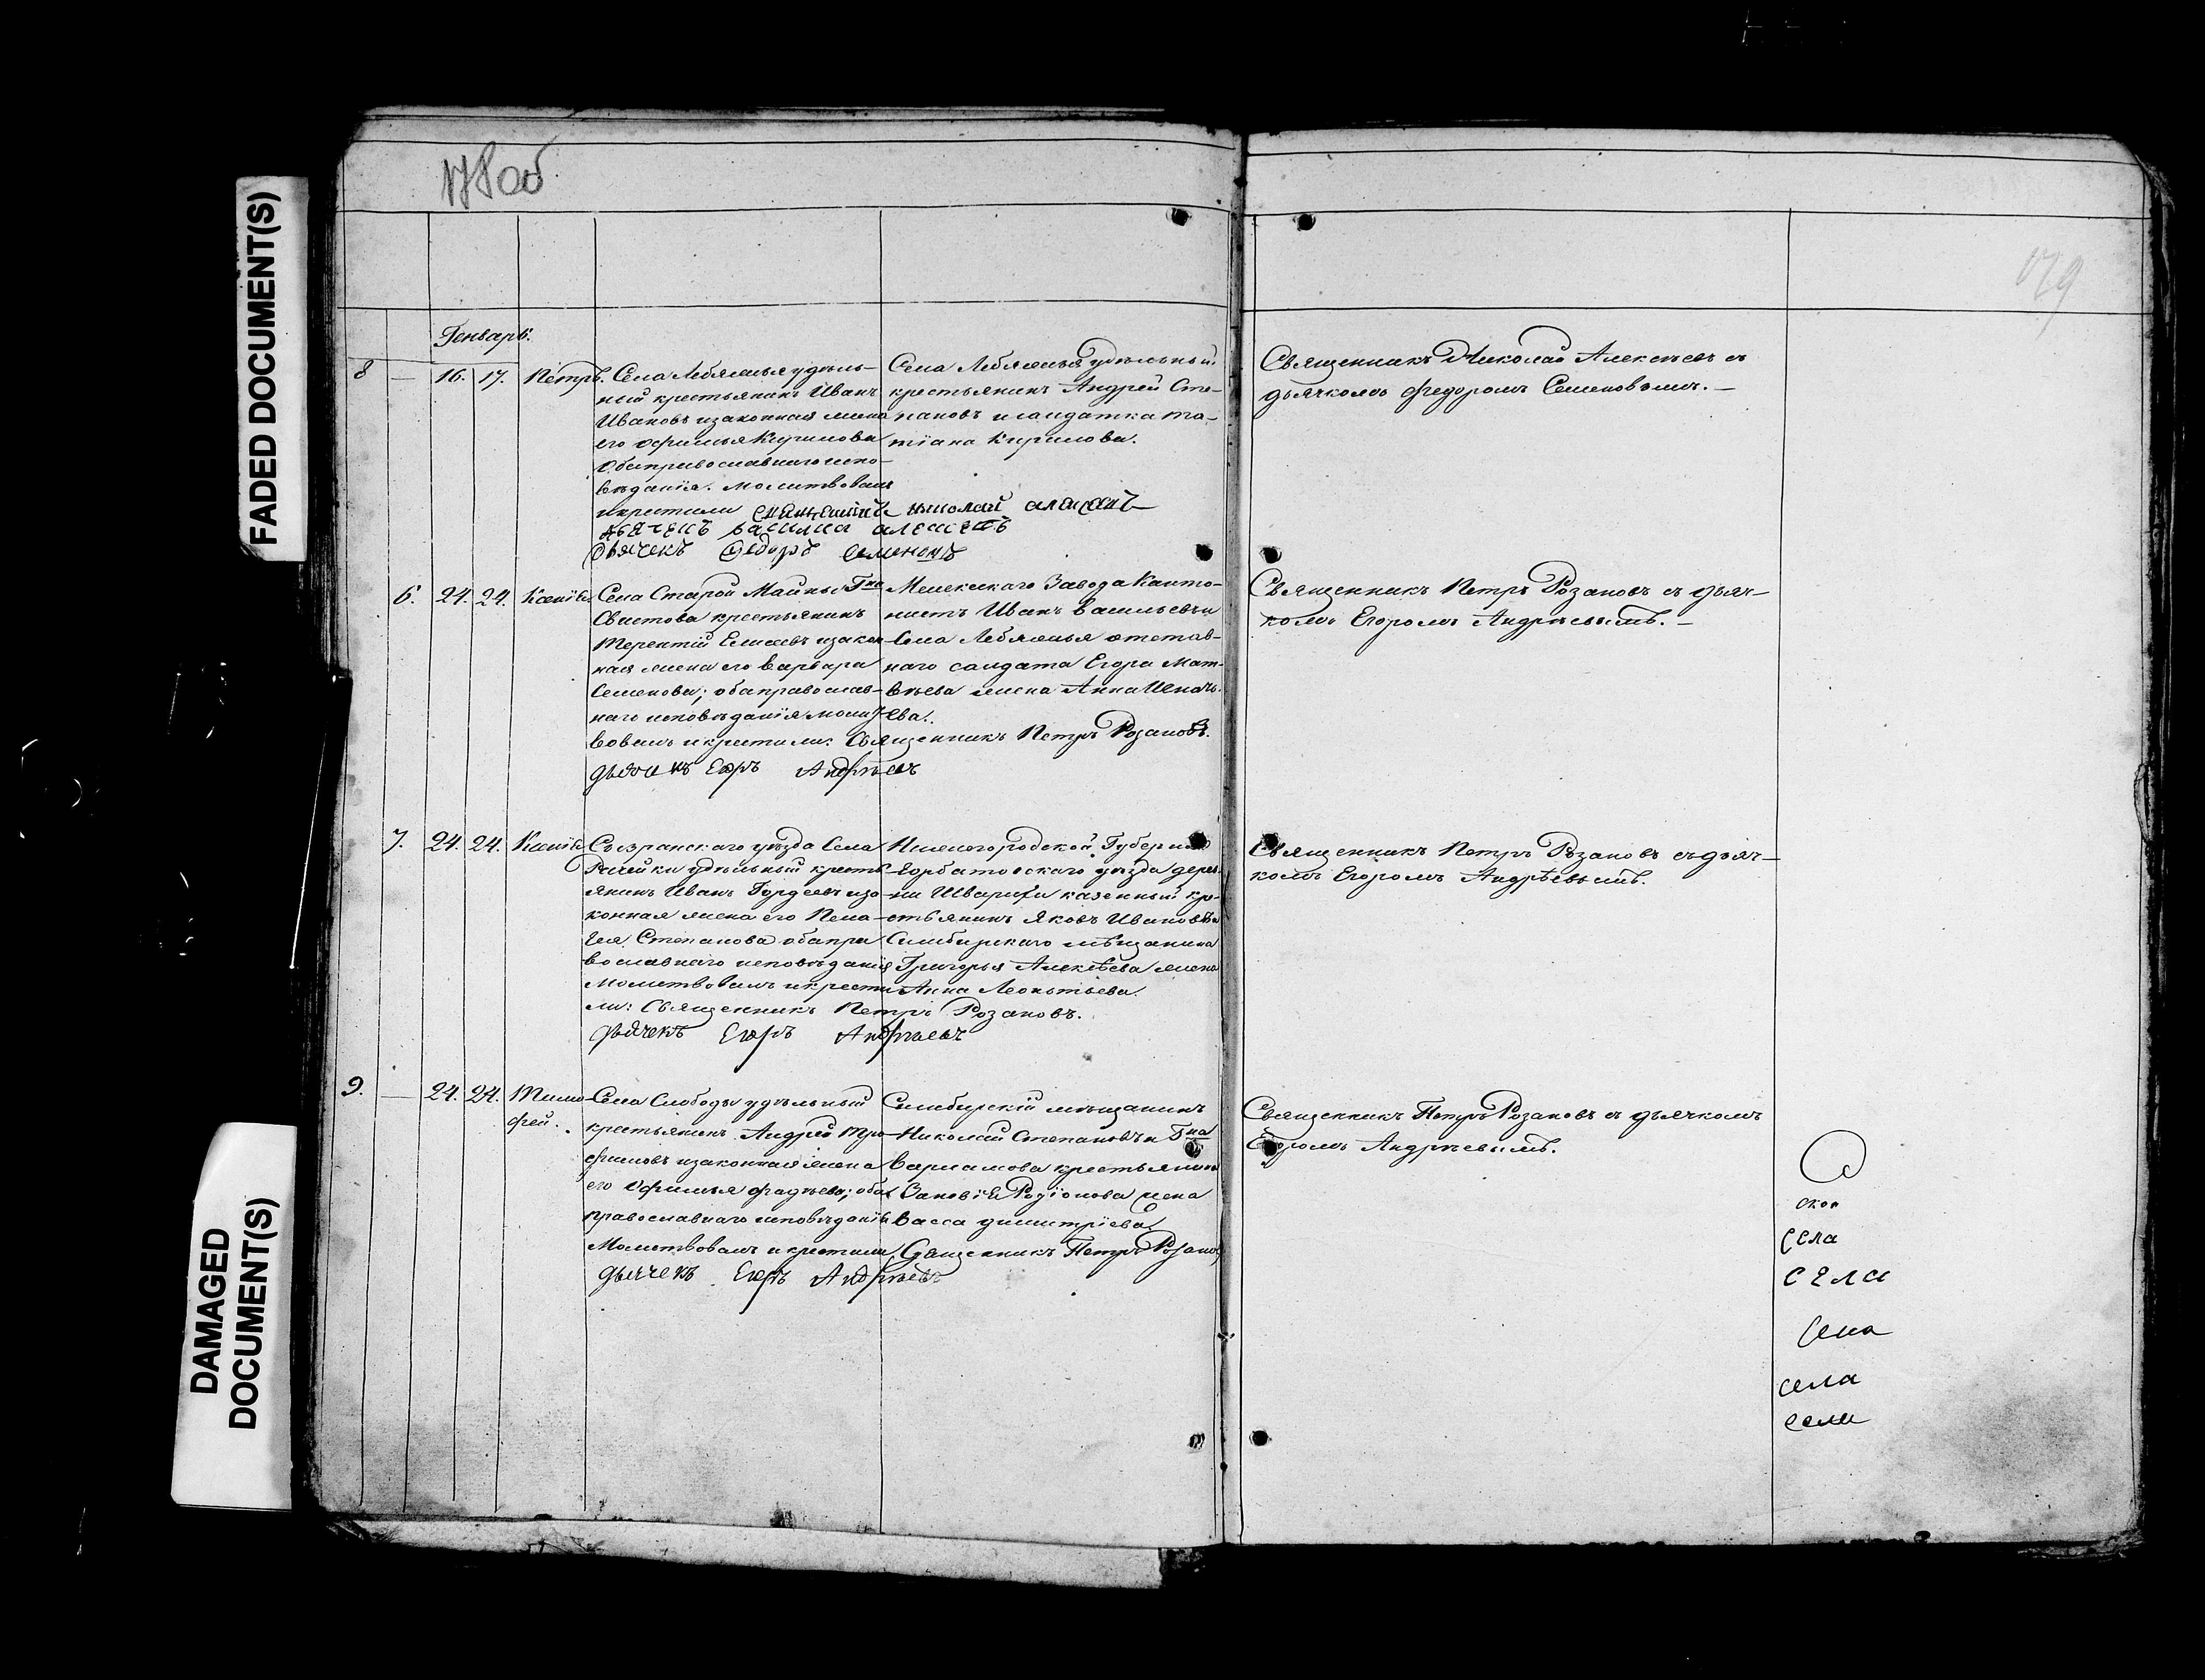 FADED DOCUMENT(S)
DAMAGED
DOCUMENT(S)
178 об
179
Генварь.
8 — 16. 17. Петръ.
Села Лебяжья удѣль-
ный крестьянинъ Иванъ
Ивановъ изаконная жена
его Офимья Кирилова
Оба православнаго испо-
вѣданія. молитвовалъ
икрестили священникъ николай алексеевъ
дьячекъ василий алексеевъ
Дьячекъ Федоръ семеновъ
Села Лебяжья удѣльный
крестьянинъ Андрей Сте-
пановъ исолдатка та-
тіана Кирилова.
Священникъ Николай Алексѣевъ съ
дьячкомъ Федоромъ Семеновымъ. —
6. 24. 24. Ксенія
Села Старой Майны Гна
Свистова крестьянинъ
Терентій Елисеевъ изакон
ная жена его варвара
Семенова; оба православ-
наго исповѣданія молит
вовалъ и крестили: Священникъ Петръ Розановъ.
дьячекъ Егоръ Андрѣевъ
Мелекескаго Завода Канто-
нистъ Иванъ васильевъ и
Села Лебяжья отстав-
наго солдата Егора Мат-
вѣева жена Анна Игнать-
ева.
Священникъ Петръ Розановъ съ дьяч-
комъ Егоромъ Андрѣевымъ. —
7. 24. 24. Ксенія
Сызранскаго уѣзда Села
Рачейки удѣльный кресть
янинъ Иванъ Гордеевъ иза
конная жена его Пела-
гея Степанова оба пра
вославнаго исповѣданія
Молитвовалъ и крести
ли: Священникъ Петръ Розановъ.
дьячекъ Егоръ Андрѣевъ
Нижегородской Губерніи
Горбатовскаго уѣзда дерев
ни Шварихи казенный кре-
стьянинъ Яковъ Ивановъ и
Симбирскаго мѣщанина
Григорья Алексѣева жена
Анна Леонтьева.
Священникъ Петръ Розановъ съ дьяч-
комъ Егоромъ Андрѣевымъ.
9. — 24. 24. Тимо-
фей.
Села Слободы удѣльный
крестьянинъ Андрей Тро-
фимовъ изаконная жена
его Офимья фадѣева; оба
православнаго исповѣданія
Молитвовалъ и крестили Священникъ Петръ Розановъ
дьячекъ Егоръ Андрѣевъ
Симбирскій мѣщанинъ
Николай Степановъ и Гна
Варламова крестьянина
Зановія Родіонова жена
васса димитріева
Священникъ Петръ Розановъ съ дьячкомъ
Егоромъ Андрѣевымъ.
села
села
села
села
села